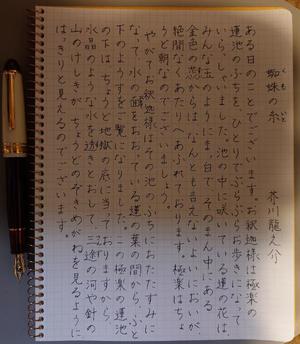 蜘蛛の糸
くも いと
芥川龍之介
ある日のことでございます。お釈迦様は極楽の
蓮池のふちを、ひとりでぶらぶらお歩きになって
いらっしゃいました。池の中に咲いている蓮の花は、
みんな玉のようにまっ白で、そのまん中にある
金色の蕊からは、なんとも言えないよいにおいが、
絶間なくあたりへあふれております。極楽はちょ
うど朝なのでございましょう。
やがてお釈迦様はその池のふちにおたたずみに
なって、水の面をおおっている蓮の葉の間から、ふと
下のようすをご覧になりました。この極楽の蓮池
の下は、ちょうど地獄の底に当っておりますから、
水晶のような水を透きとおして、三途の河や針の
山のけしきが、ちょうどのぞきめがねを見るように、
はっきりと見えるのでございます。